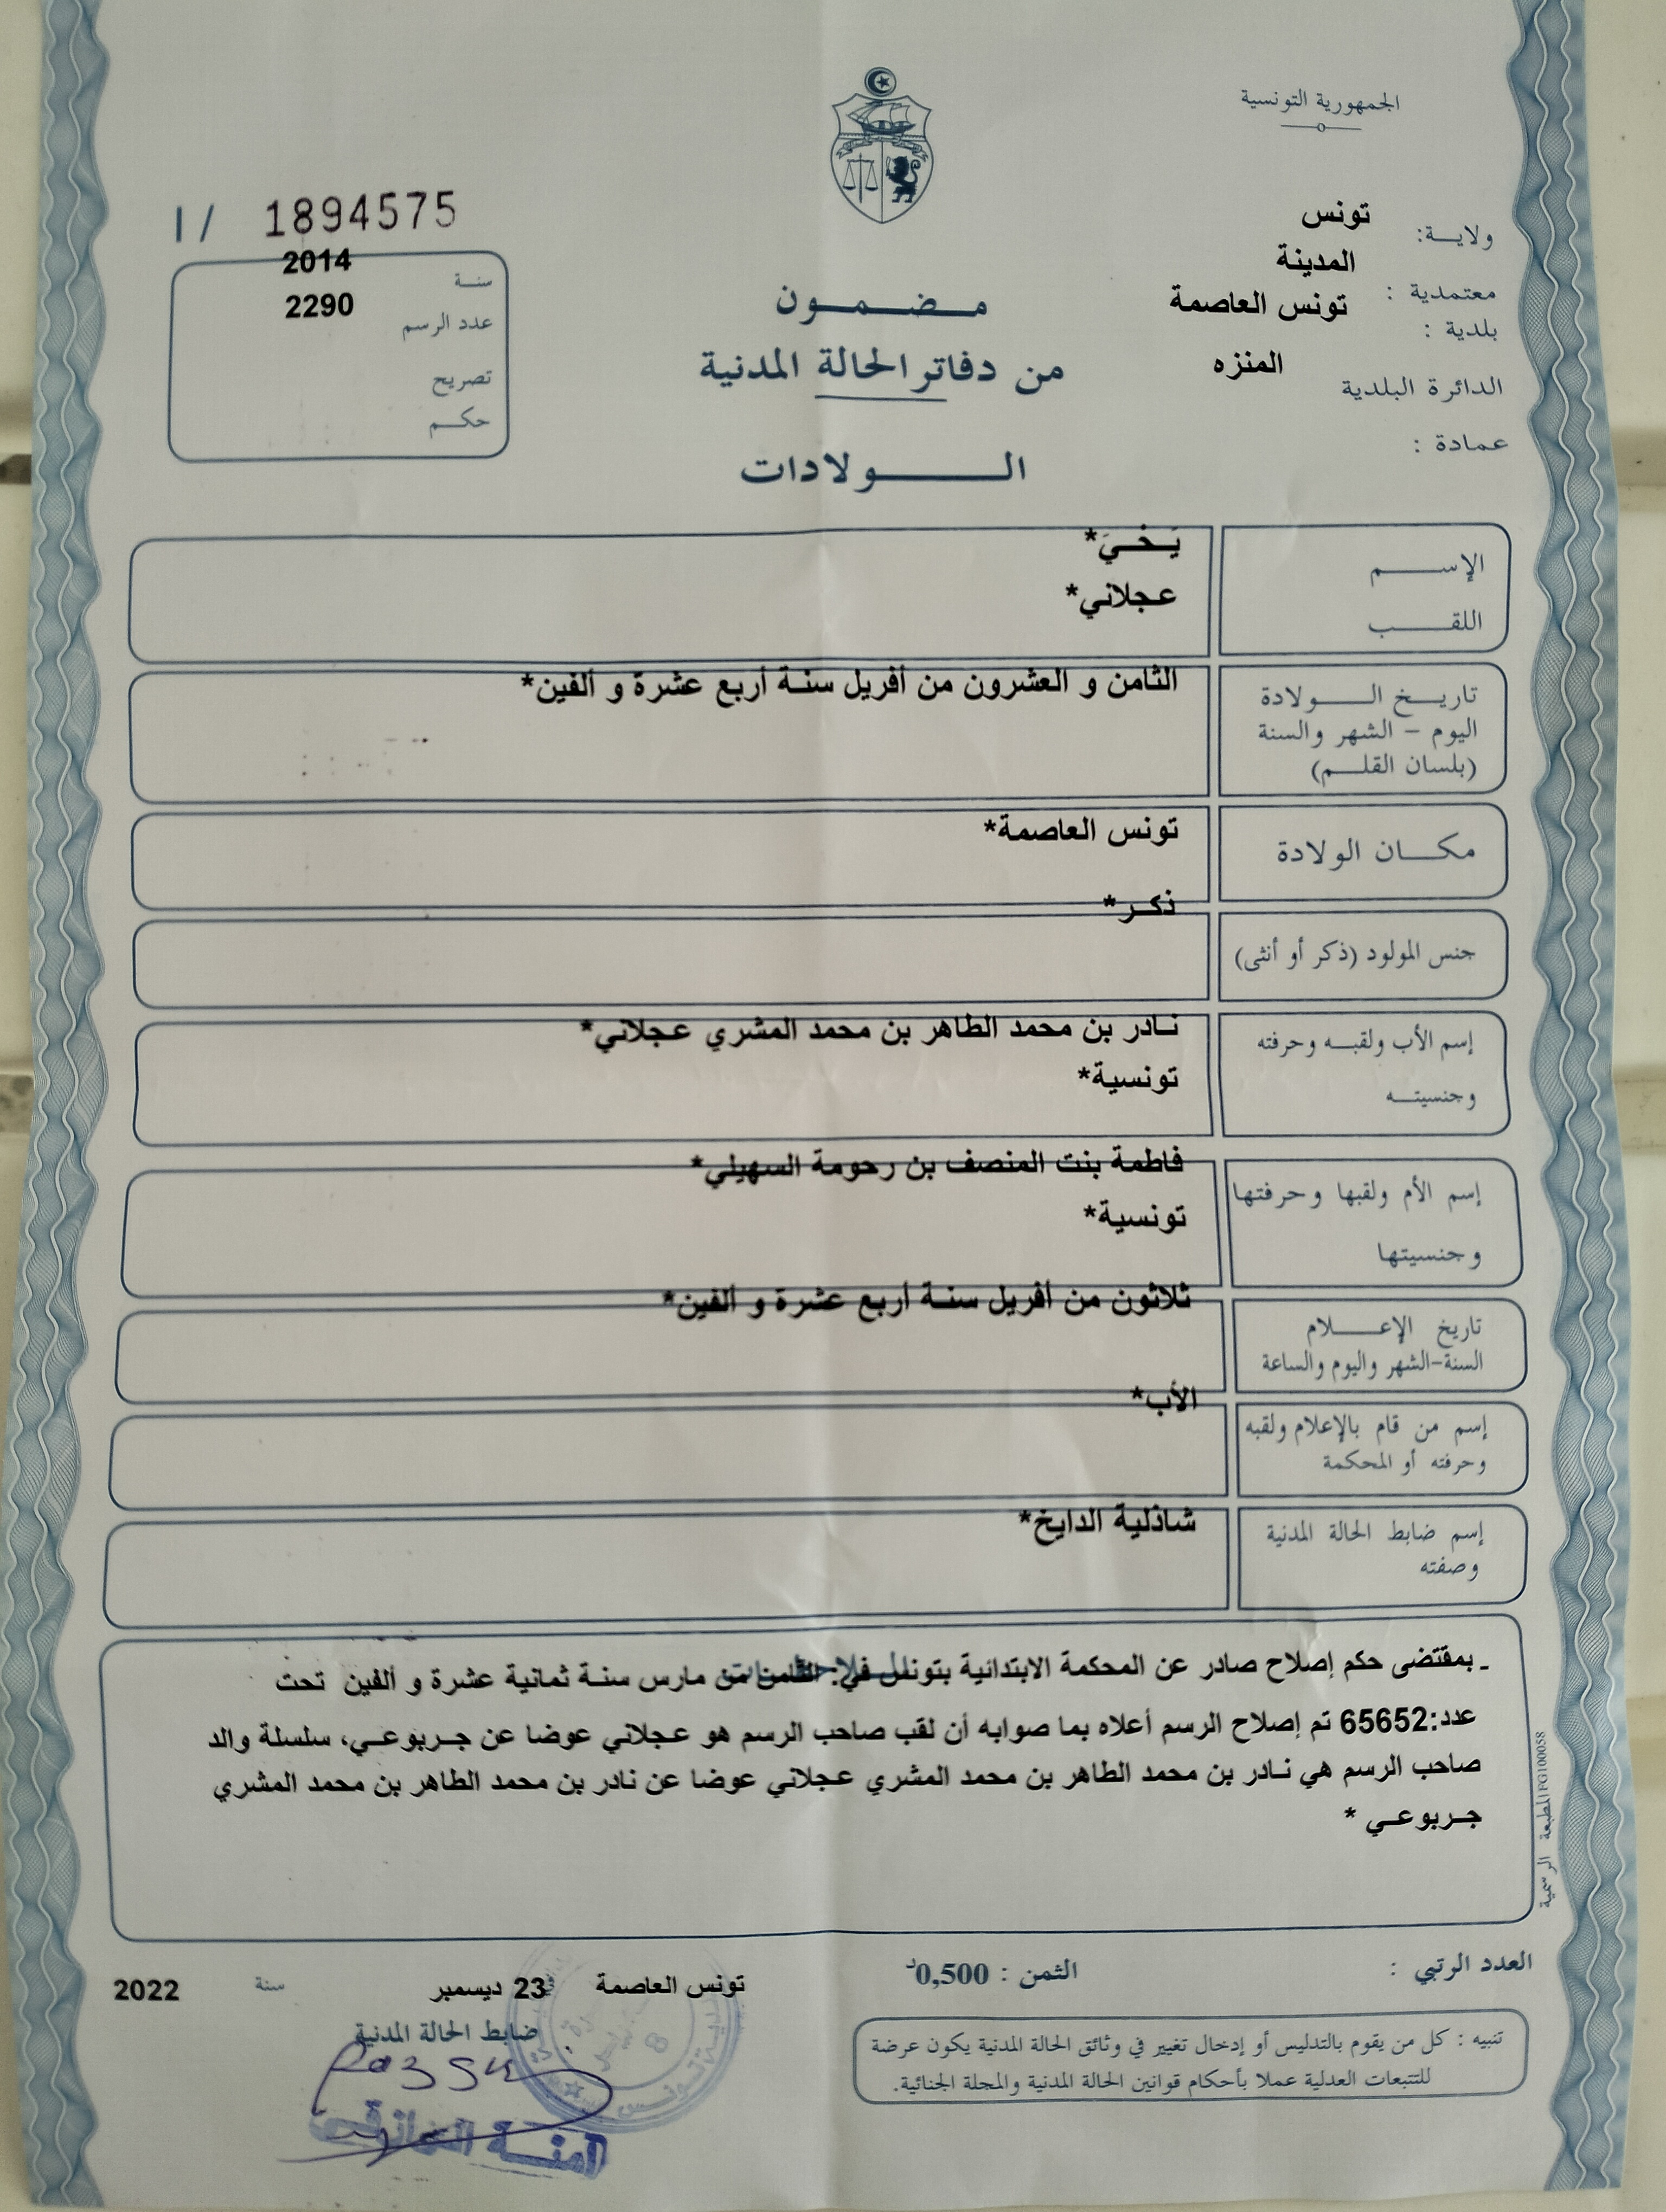 الجمهورية التونسية
ولاية: تونس
معتمدية : المدينة
بلدية : تونس العاصمة
الدائرة البلدية المنزه
عمادة :
مضمون
من دفاتر الحالة المدنية
الولادات
1/ 1894575
سنة 2014
عدد الرسم 2290
تصريح
حكم
الإسم
يَحْيَ*
اللقب
عجلاني*
تاريخ الولادة
اليوم – الشهر والسنة
(بلسان القلم)
الثامن و العشرون من أفريل سنة أربع عشرة و ألفين*
مكان الولادة
تونس العاصمة*
جنس المولود (ذكر أو أنثى)
ذكر*
إسم الأب ولقبه وحرفته
نادر بن محمد الطاهر بن محمد المشري عجلاني*
وجنسيته
تونسية*
إسم الأم ولقبها وحرفتها
فاطمة بنت المنصف بن رحومة السهيلي*
وجنسيتها
تونسية*
تاريخ الإعلام
السنة-الشهر واليوم والساعة
ثلاثون من أفريل سنة أربع عشرة و ألفين*
إسم من قام بالإعلام ولقبه
وحرفته أو المحكمة
الأب*
إسم ضابط الحالة المدنية
وصفته
شاذلية الدايخ*
ـ بمقتضى حكم إصلاح صادر عن المحكمة الابتدائية بتونس في: الثامن من مارس سنة ثمانية عشرة و ألفين تحت
عدد:65652 تم إصلاح الرسم أعلاه بما صوابه أن لقب صاحب الرسم هو عجلاني عوضا عن جربوعي، سلسلة والد
صاحب الرسم هي نادر بن محمد الطاهر بن محمد المشري عجلاني عوضا عن نادر بن محمد الطاهر بن محمد المشري
جربوعي *
المطبعة الرسمية PG100058
العدد الرتبي :
الثمن : 0,500د
تونس العاصمة 23 ديسمبر سنة 2022
ضابط الحالة المدنية
تنبيه : كل من يقوم بالتدليس أو إدخال تغيير في وثائق الحالة المدنية يكون عرضة
للتتبعات العدلية عملا بأحكام قوانين الحالة المدنية والمجلة الجنائية.
آمنة